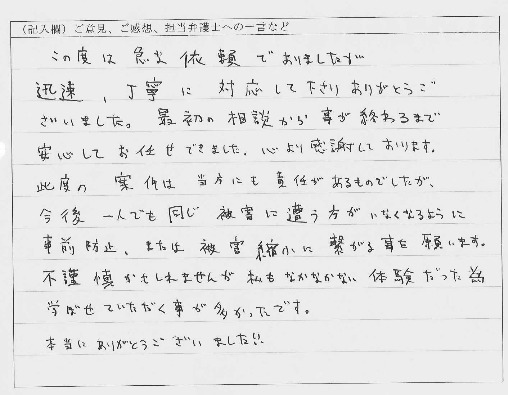 (記入欄)ご意見、ご感想、担当弁護士への一言など
この度は 急な 依頼でありましたが
迅速、丁寧に 対応して下さり ありがとうご
ざいました。最初の相談から事が終わるまで
安心してお任せできました。心より感謝しております。
此度の 案件は 当方にも責任があるものでしたが、
今後 一人でも同じ 被害に遭う方がいなくなるように
事前防止、または被害縮小に繋がる事を願います。
不謹慎かもしれませんが私もなかなかない体験だった為
学ばせていただく事が多かったです。
本当にありがとうございました!!